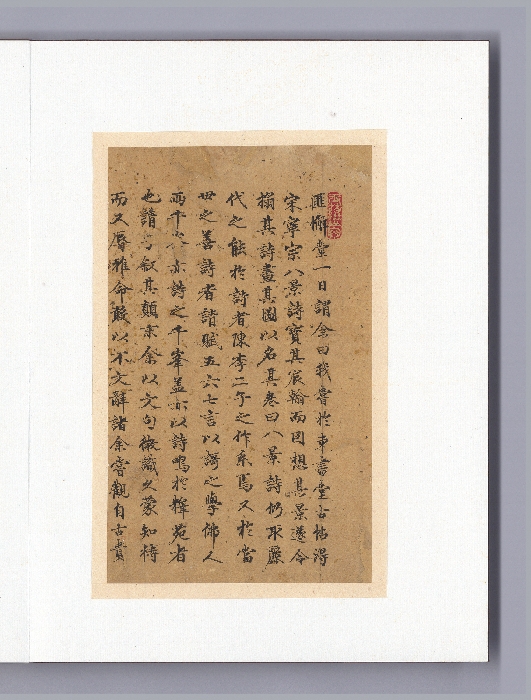 匪懈堂一日謂余曰我嘗於東書堂古帖得
宋寧宗八景詩寶其宸翰而因想其景遂令
搨其詩畫其圖以名其卷曰八景詩仍取麗
代之能於詩者陳李二子之作系焉又於當
世之善詩者請賦五六七言以謌之學佛人
雨千峯亦詩之千峯盖亦以詩鳴於緇苑者
也請余叙其顛末余以文句微識久蒙知待
而又辱雅命敢以不文辭諸余嘗觀自古貴